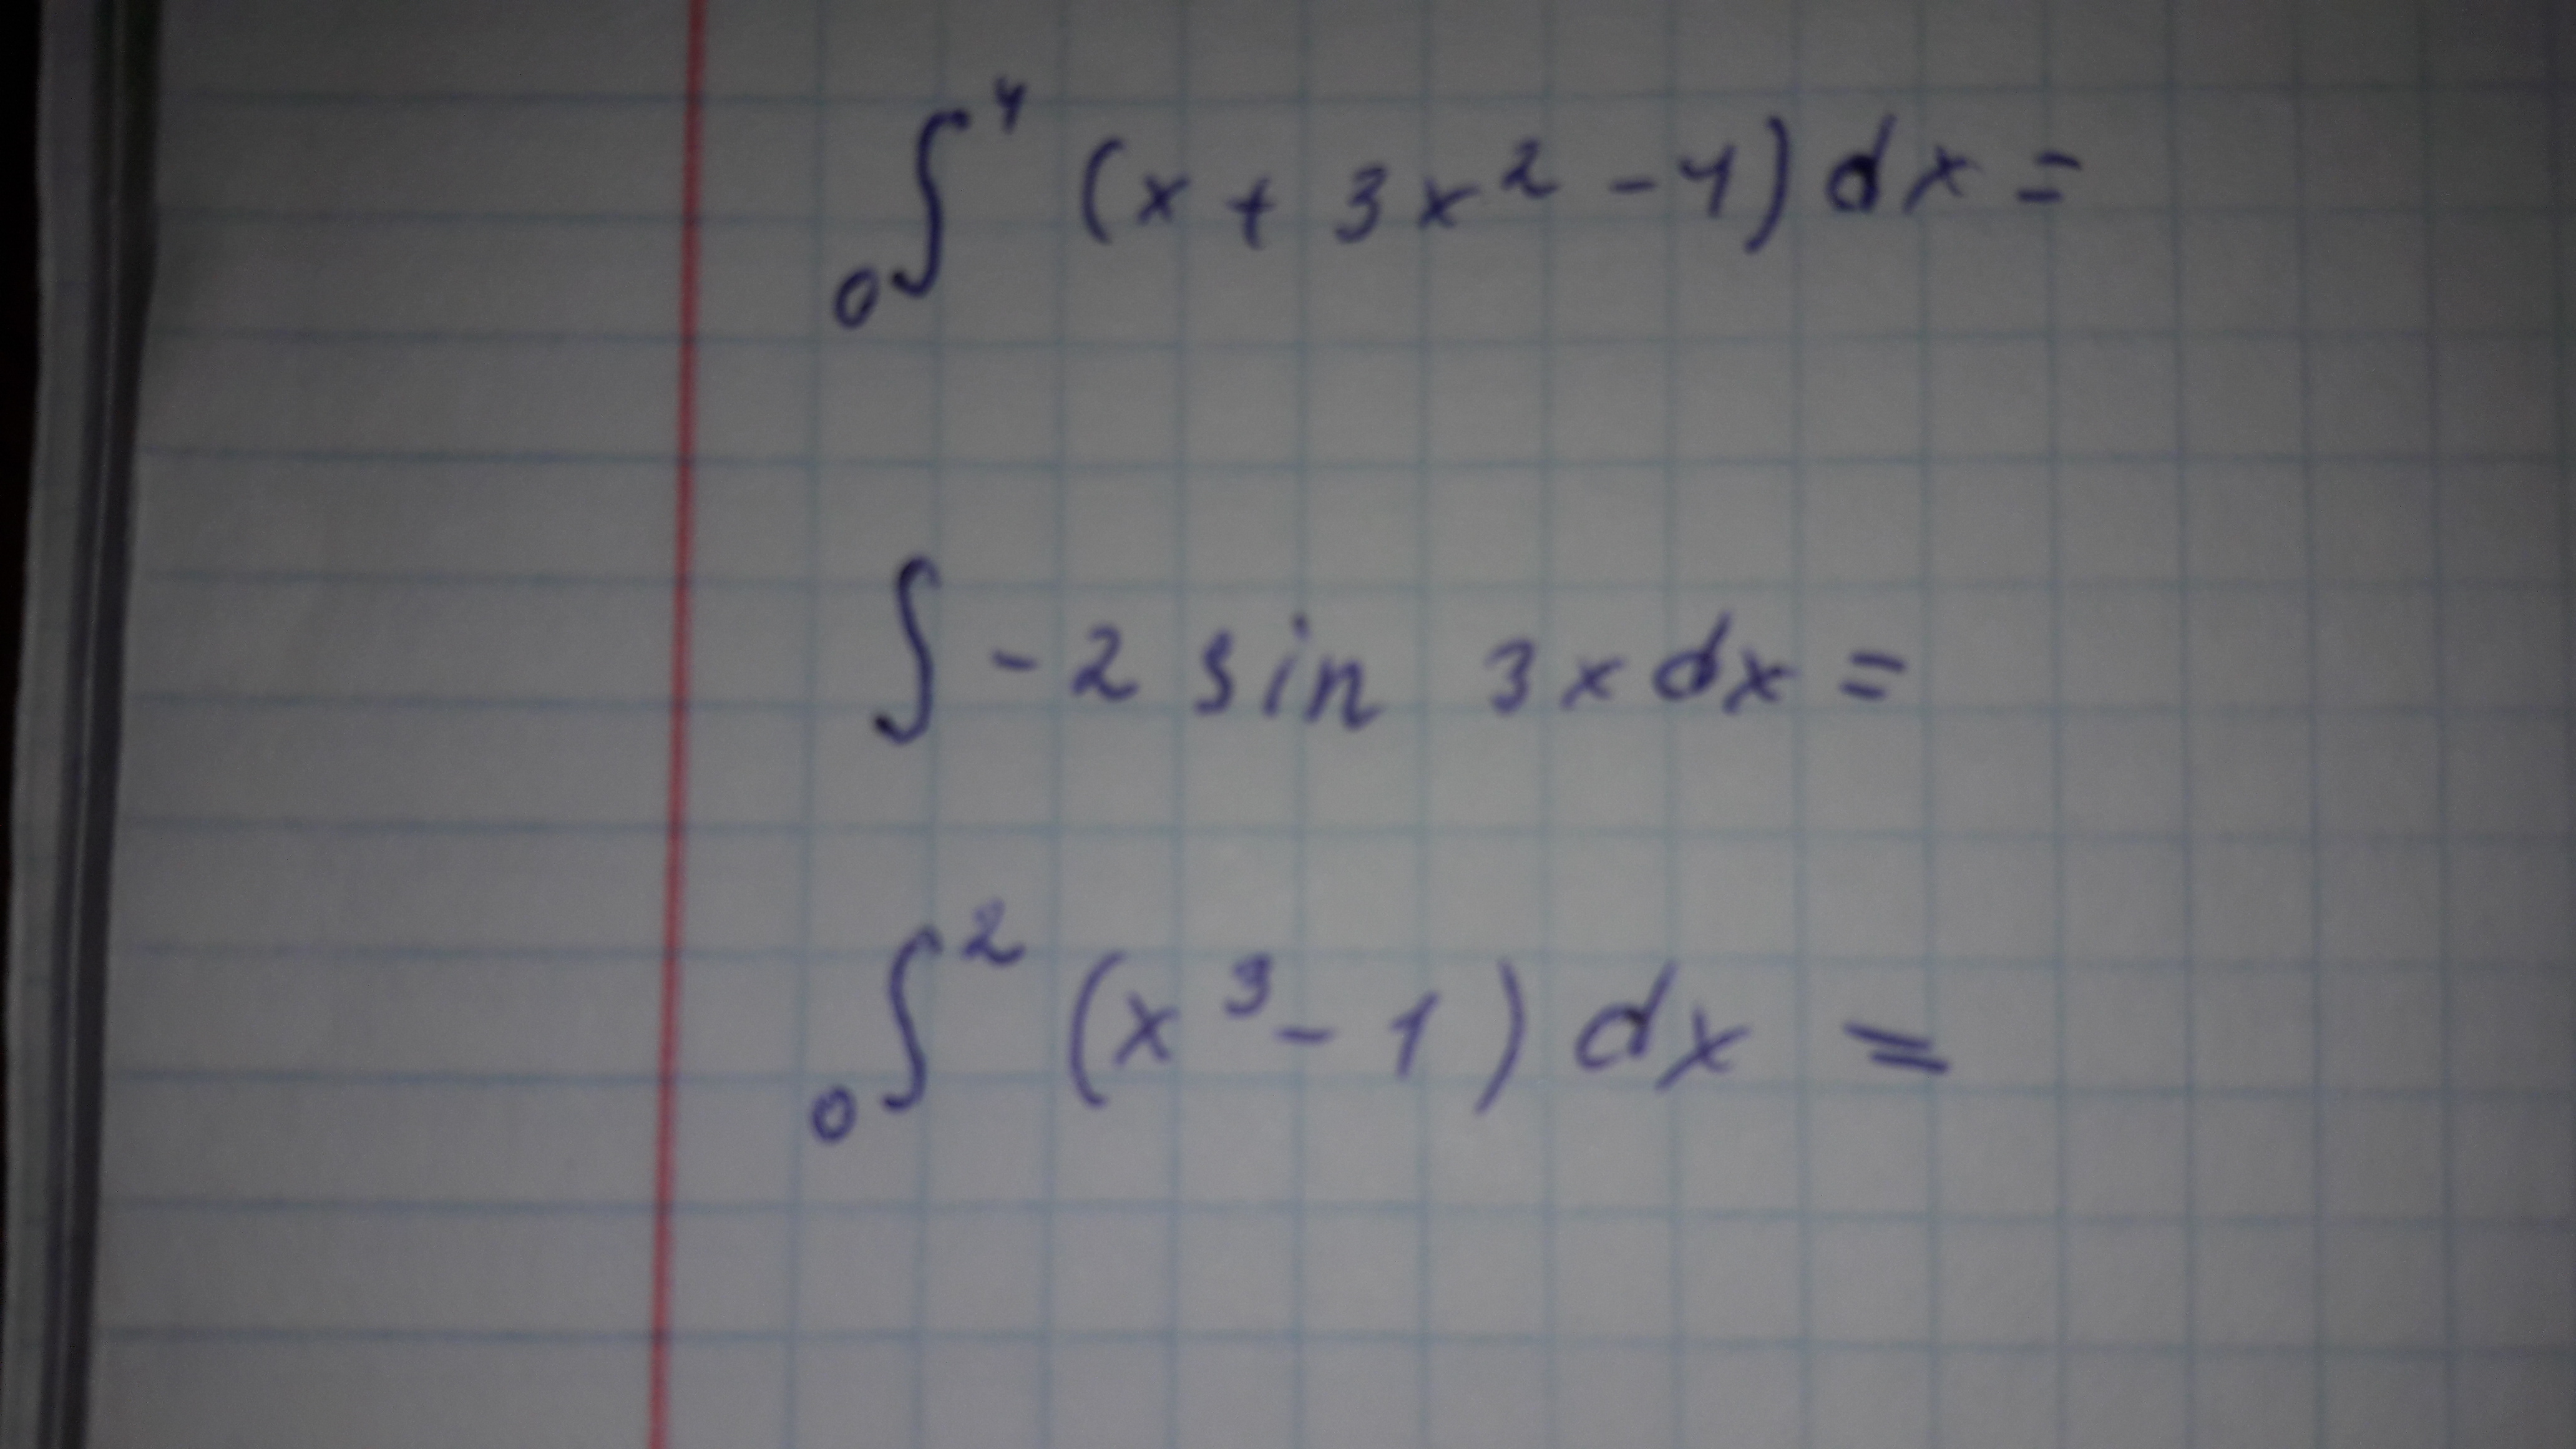 ₀∫⁴ (x + 3x² - 4) dx =
∫ - 2 sin 3x dx =
₀∫² (x³ - 1) dx =